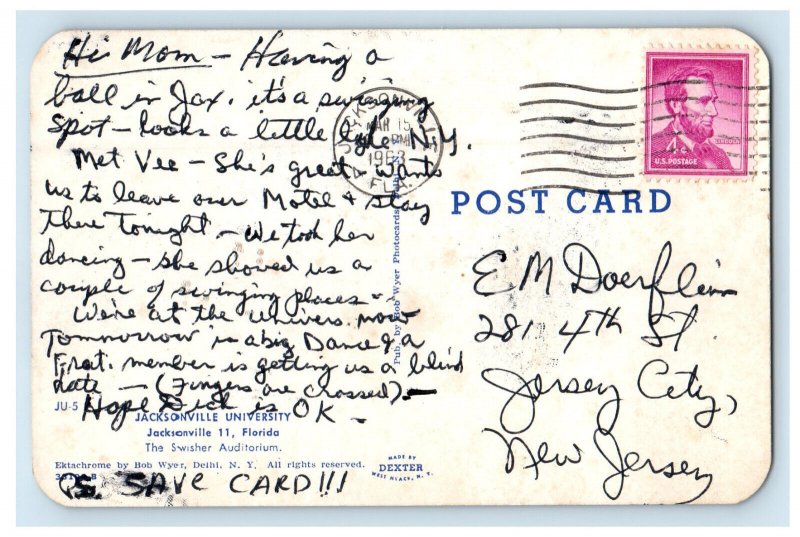 Hi Mom - Having a
ball in Jax. it's a swinging
spot - looks a little like N.Y.
Met Vee - She's great - wants
us to leave our Motel & stay
there tonight - We took her
dancing - she showed us a
couple of swinging places -
We're at the Univers. now
Tommorrow is a big Dance & a
Frat. member is getting us a blind
date - (Fingers are crossed). -
Hope Dick is OK -
JU-5
JACKSONVILLE UNIVERSITY
Jacksonville 11, Florida
The Swisher Auditorium.
Ektachrome by Bob Wyer, Delhi, N. Y. All rights reserved.
P.S. SAVE CARD!!!
Pub. by Bob Wyer Photocards
MADE BY
DEXTER
WEST NYACK, N. Y.
JACKSONVILLE
MAR 15
PM
1963
FLA.
4¢
U.S. POSTAGE
POST CARD
E M Doerflein
281 4th St.
Jersey City,
New Jersey